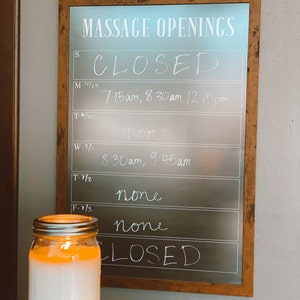 MASSAGE OPENINGS
S CLOSED
M 7:15am, 8:30am, 12:15pm
T none
W 7/1 8:30am, 9:45am
T 7/2 none
F 7/3 none
CLOSED